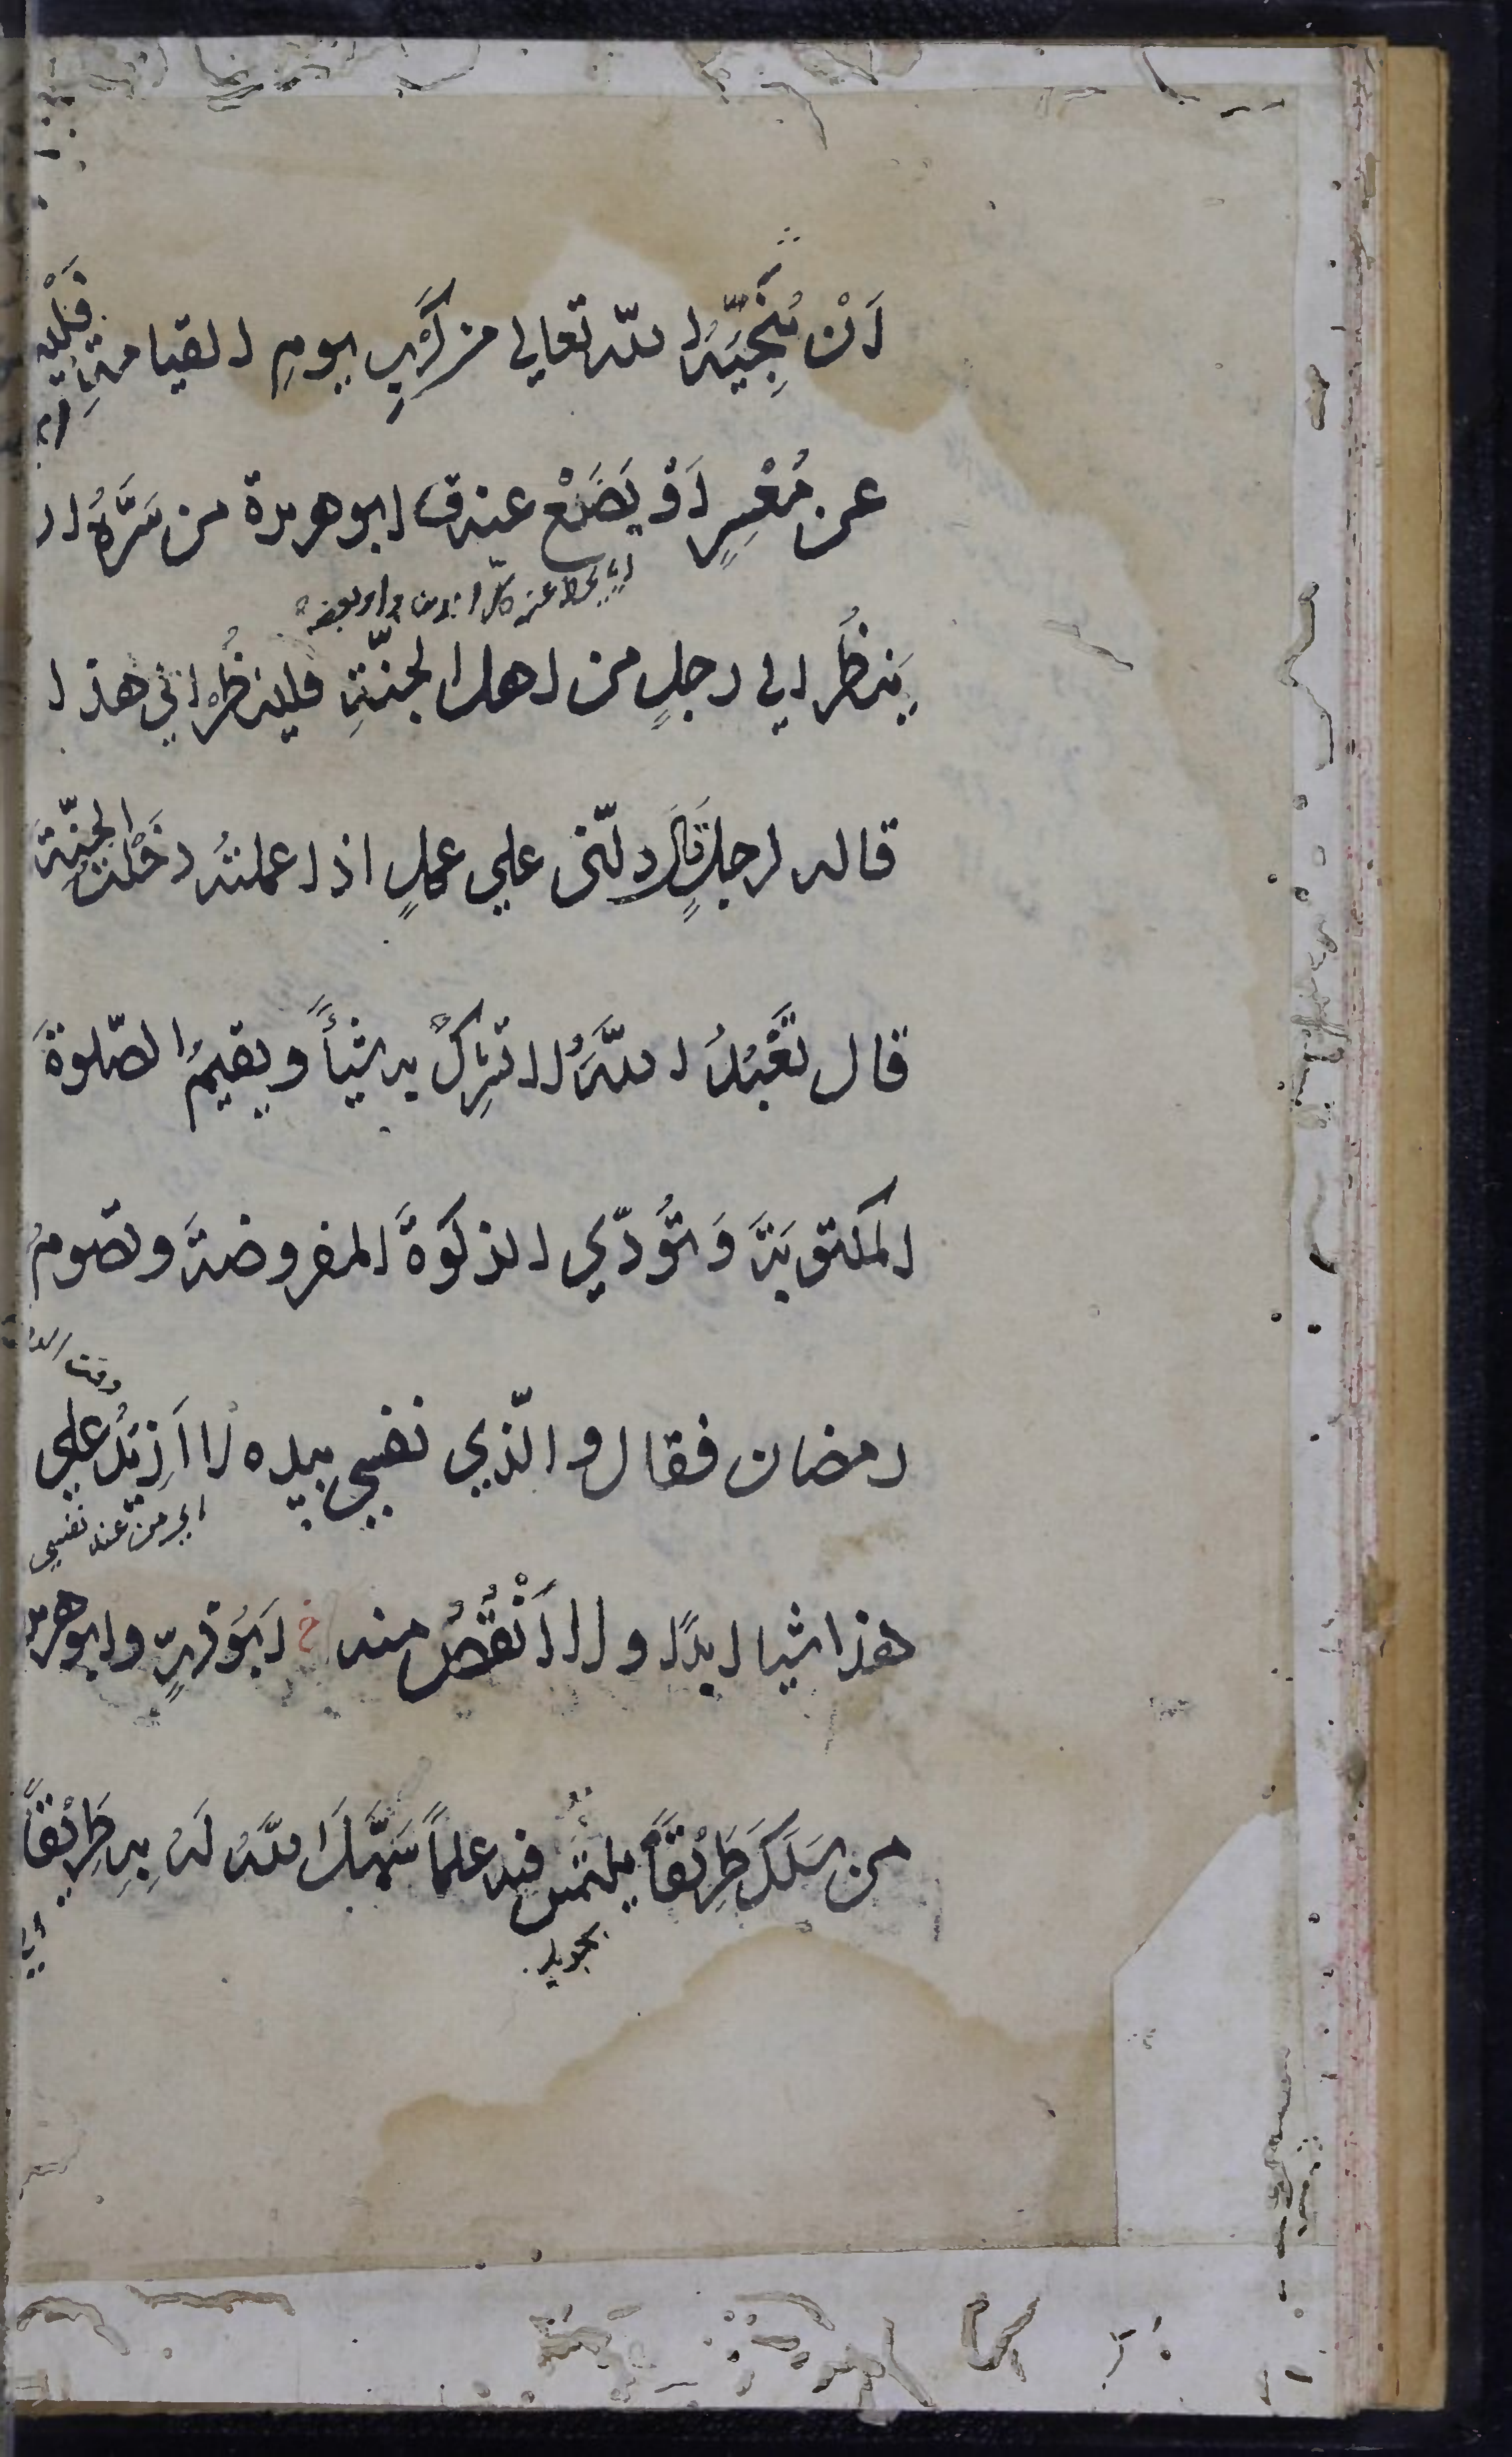 اَنْ يُنَجِّيَهُ الله تعالي من كُرَبِ يومِ القيامةِ فَلْيُ
عن مُعْسِرٍ اَوْ يَضَعْ عنه ق ابو هريرة من سَرَّهُ ان
اي يحط عنه كل الدين او بعضه
يَنظُرَ الي رجلٍ من اهل الجنّةِ فلينظُر الي هذا
قاله لرجلٍ قَالَ دلّني علي عملٍ اذا عملتُه دَخَلْتُ الجنّةَ
قال تَعْبُدُ اللهَ لا تشرِكُ به شيأً وتقيمُ الصّلوةَ
المكتوبَةَ وَتُؤَدّي الزكوةَ المفروضةَ وتصومُ
رمضان فقال والّذي نفسي بيده لا اَزِيْدُ علي
اي من عند نفسي
هذا شيا ابدًا ولا اَنْقُصُ منه خ اَبُوْ ذرٍّ وابو هريرة
من سَلَكَ طَرِيْقًا يلتمس فيه علماً سَهَّلَ اللهُ لَهُ بِهِ طَرِيْقًا